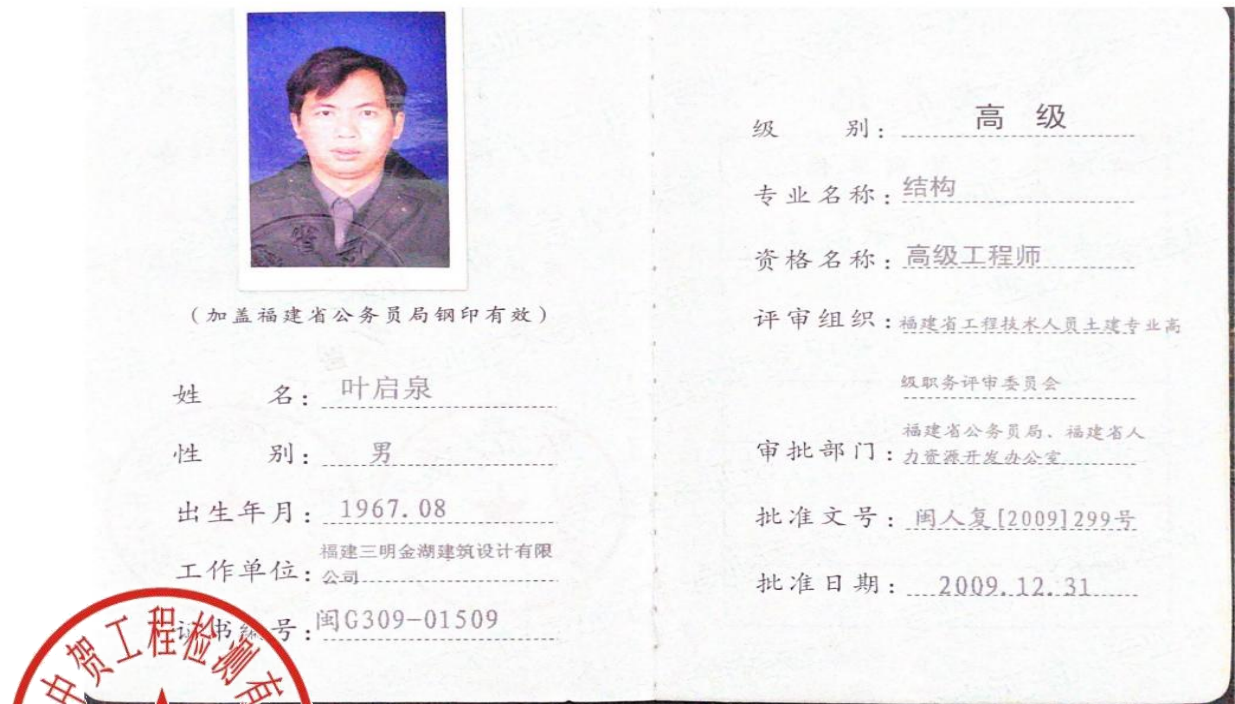 (加盖福建省公务员局钢印有效)
姓 名: 叶启泉
性 别: 男
出生年月: 1967.08
工作单位: 福建三明金湖建筑设计有限
公司
证书编号: 闽G309-01509
申贺工程检测有
级 别: 高 级
专业名称: 结构
资格名称: 高级工程师
评审组织: 福建省工程技术人员土建专业高
级职务评审委员会
审批部门: 福建省公务员局、福建省人
力资源开发办公室
批准文号: 闽人复[2009]299号
批准日期: 2009.12.31